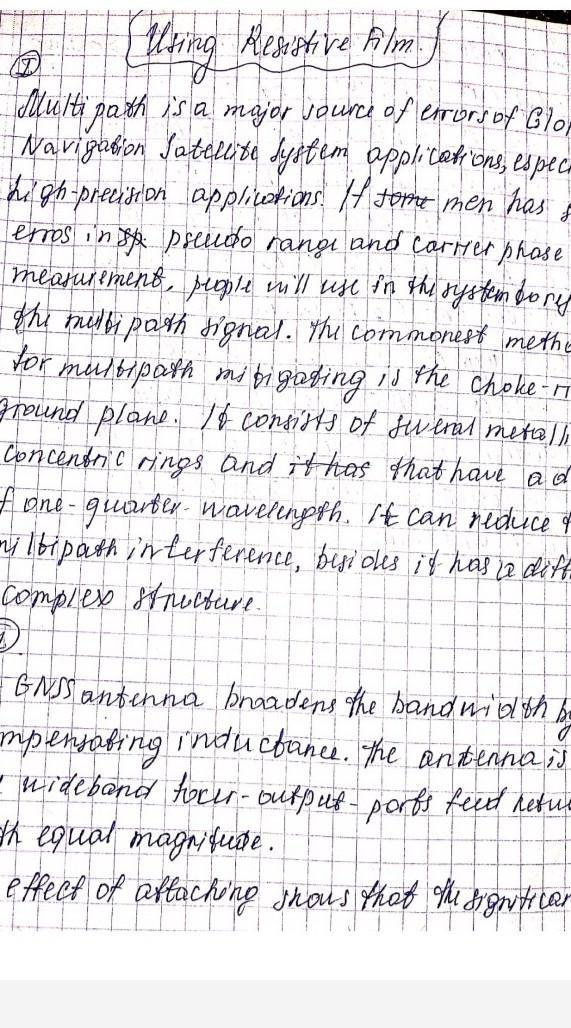 Using Resistive Film.
I
Multipath is a major source of errors of Glo
Navigation Satellite System applications, espec
high-precision applications. If some men has s
erros in sp pseudo range and carrier phase
measurement, people will use in the system
the multipath signal. The commonest metho
for multipath mitigating is the choke-ri
ground plane. It consists of several metalli
concentric rings and it has that have a d
f one-quarter-wavelength. It can reduce t
multipath interference, besides it has a diff
complex structure.
GNSS antenna broadens the bandwidth by
mpensating inductance. The antenna is
wideband four-output-ports feed netw
th equal magnitude.
effect of attaching shows that the significan